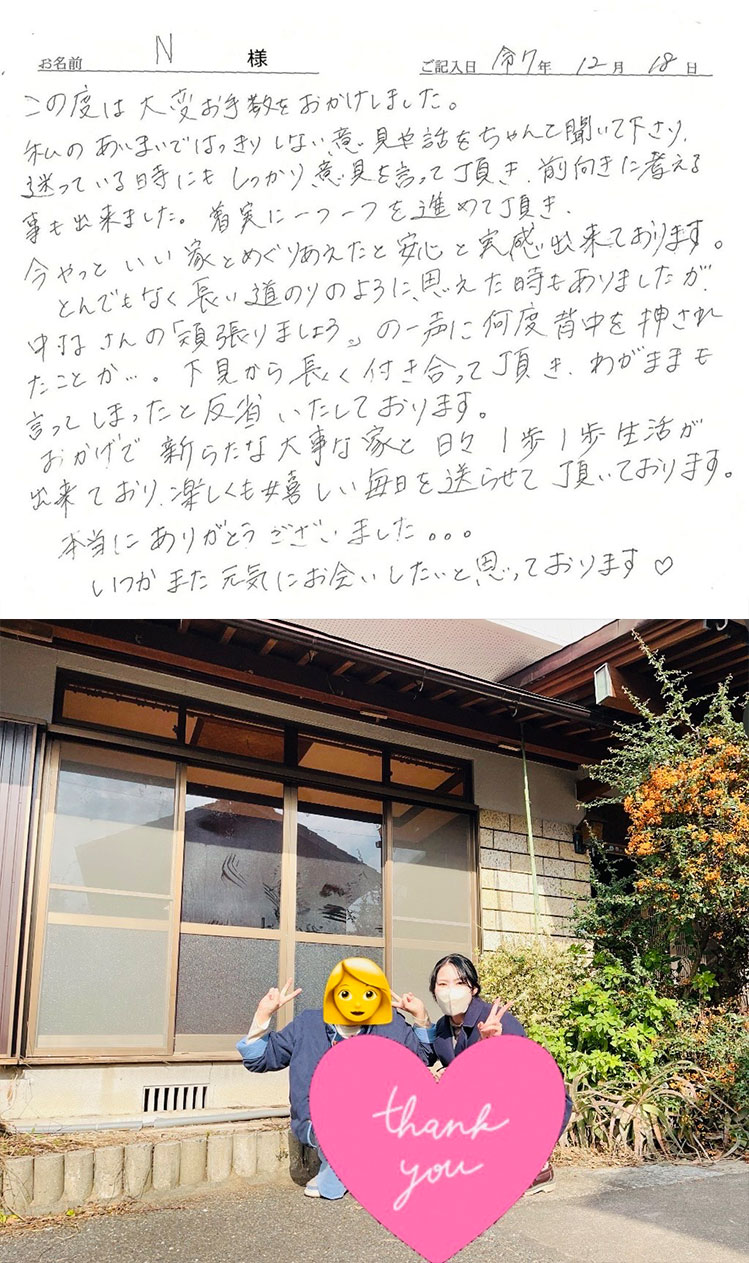 お名前 N 様 ご記入日 令7年 12月 18日
この度は大変お手数をおかけしました。
私のあいまいではっきりしない意見や話をちゃんと聞いて下さり、
迷っている時にもしっかり意見を言って頂き、前向きに考える
事も出来ました。着実に一つ一つを進めて頂き、
今やっといい家とめぐりあえたと安心と実感出来ております。
とんでもなく長い道のりのように思えた時もありましたが、
さんの「頑張りましょう。」の一声に何度背中を押され
たことか…。下見から長く付き合って頂き、わがままも
言ってしまったと反省いたしております。
おかげで新らたな大事な家と日々1歩1歩生活が
出来ており、楽しくも嬉しい毎日を送らせて頂いております。
本当にありがとうございました。。。
いつかまた元気にお会いしたいと思っております♡
thank
you